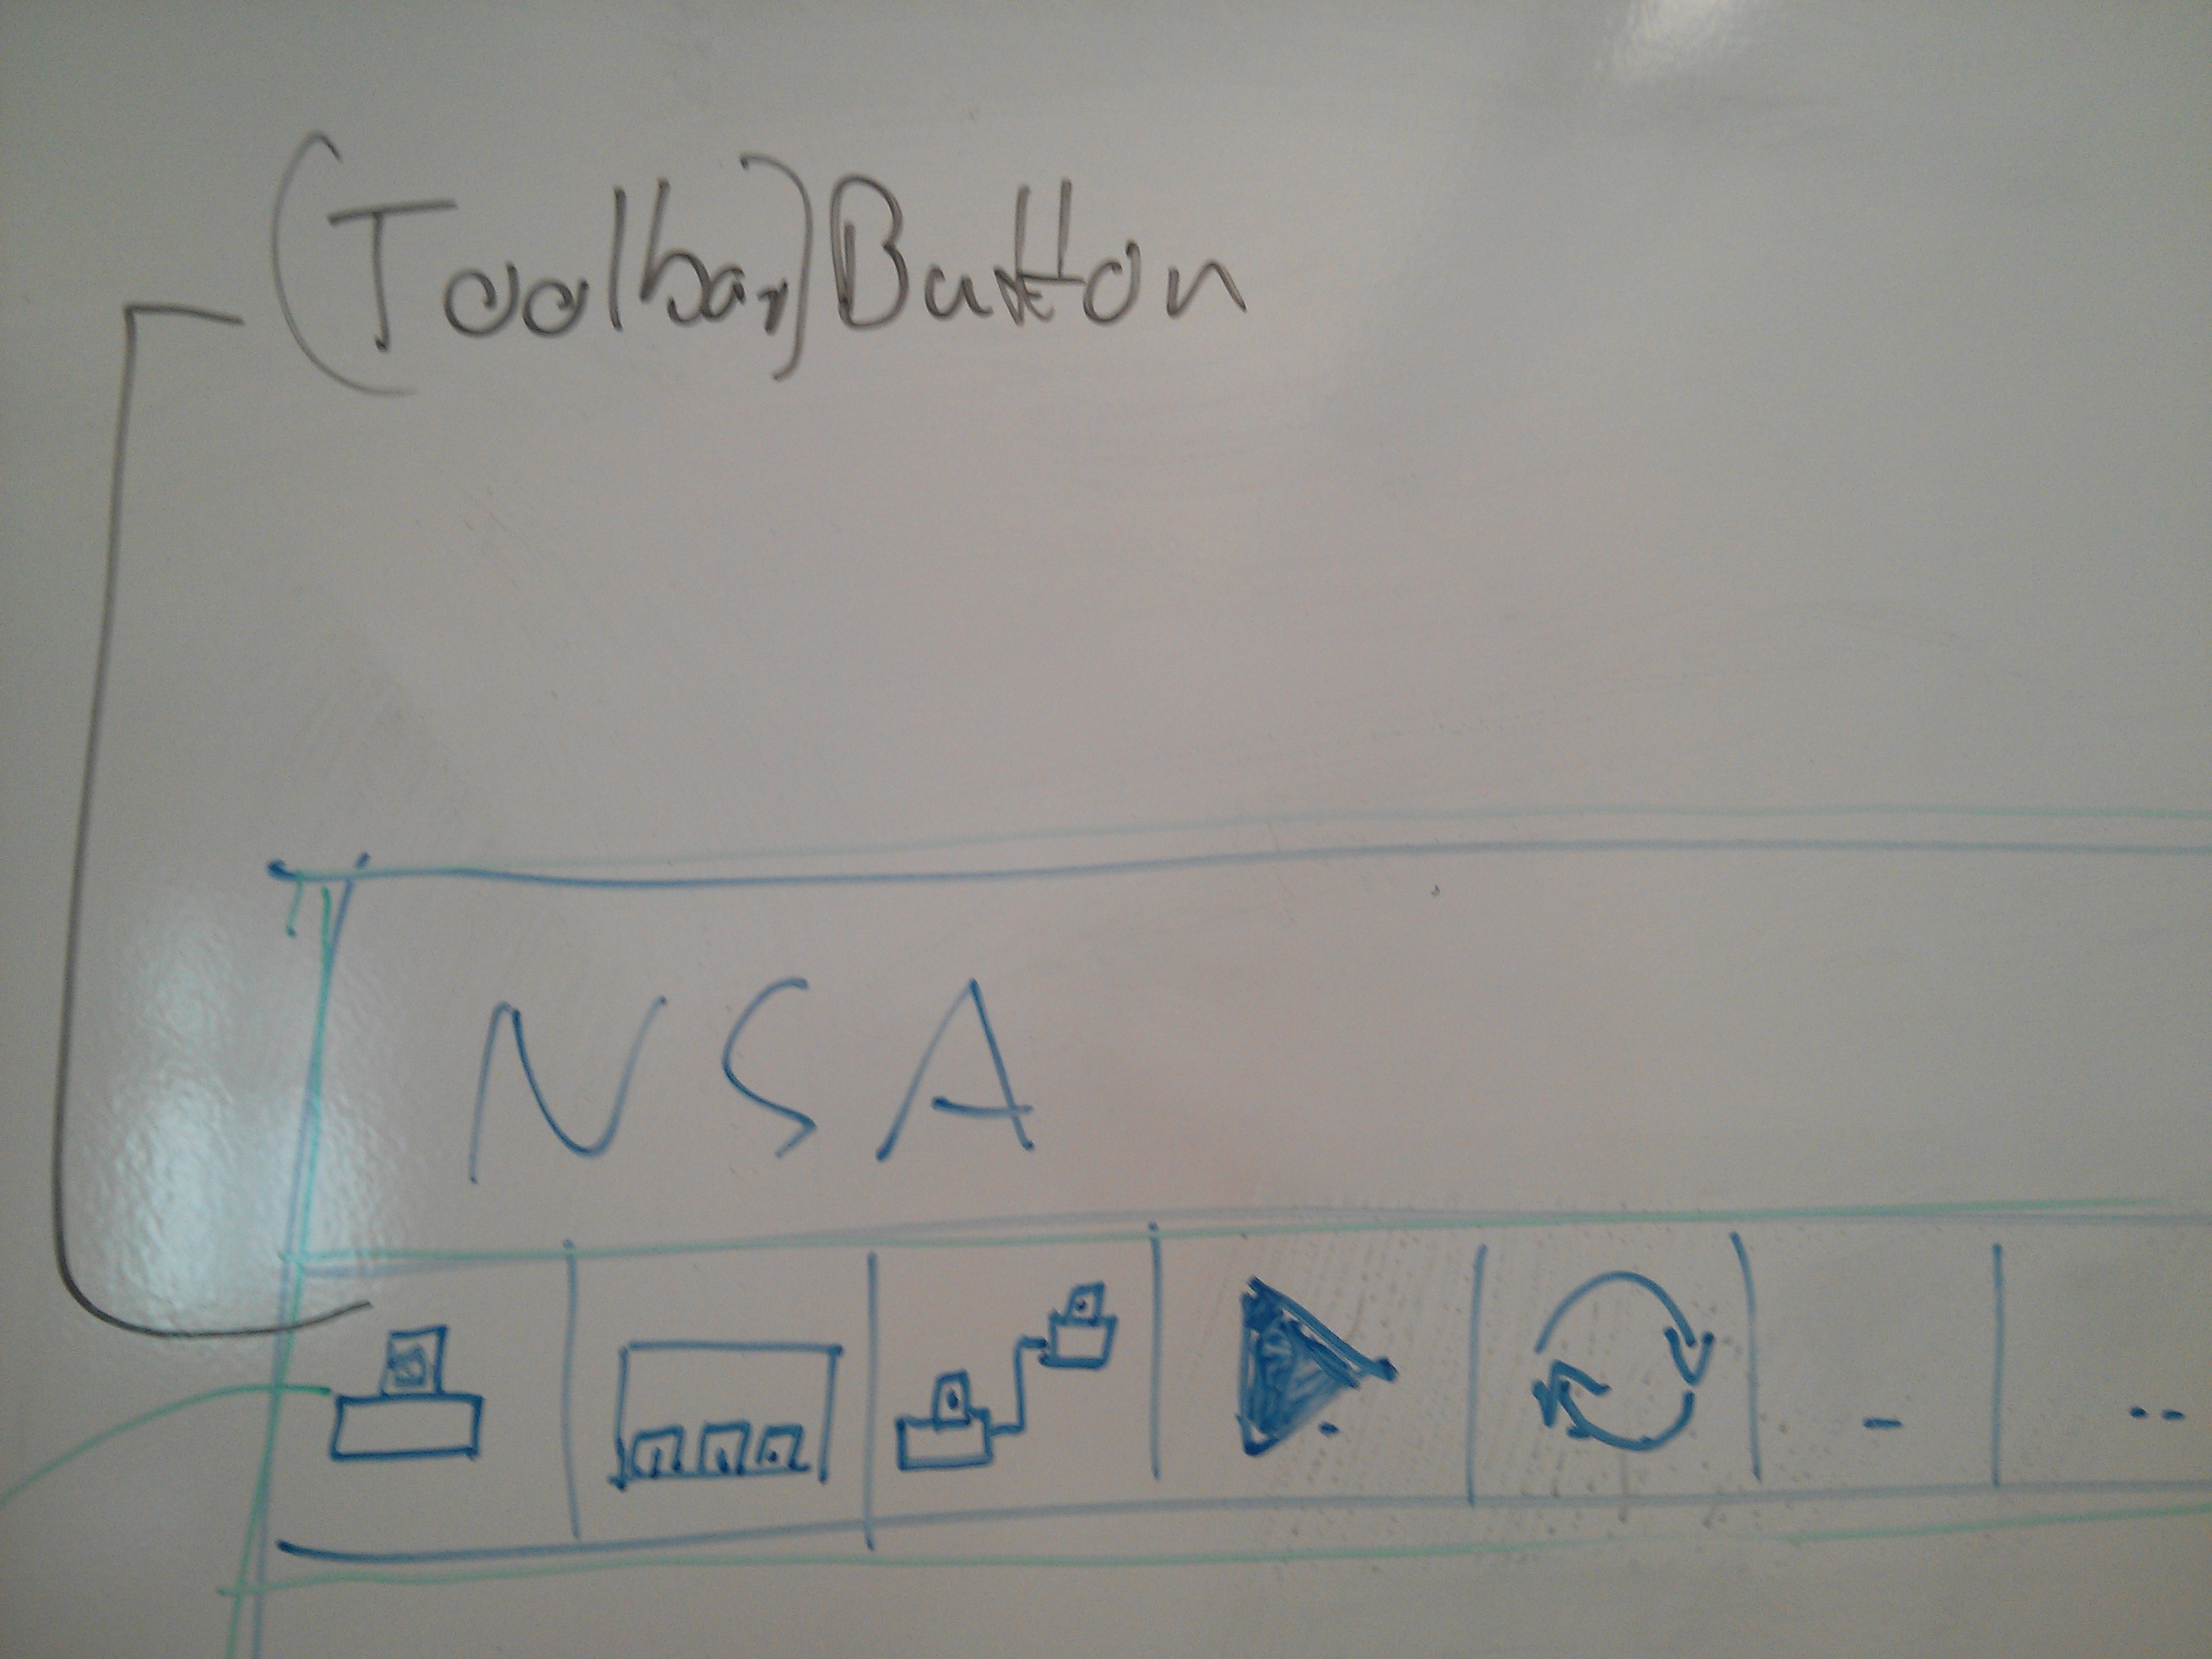 (Toolbar)Button
NSA